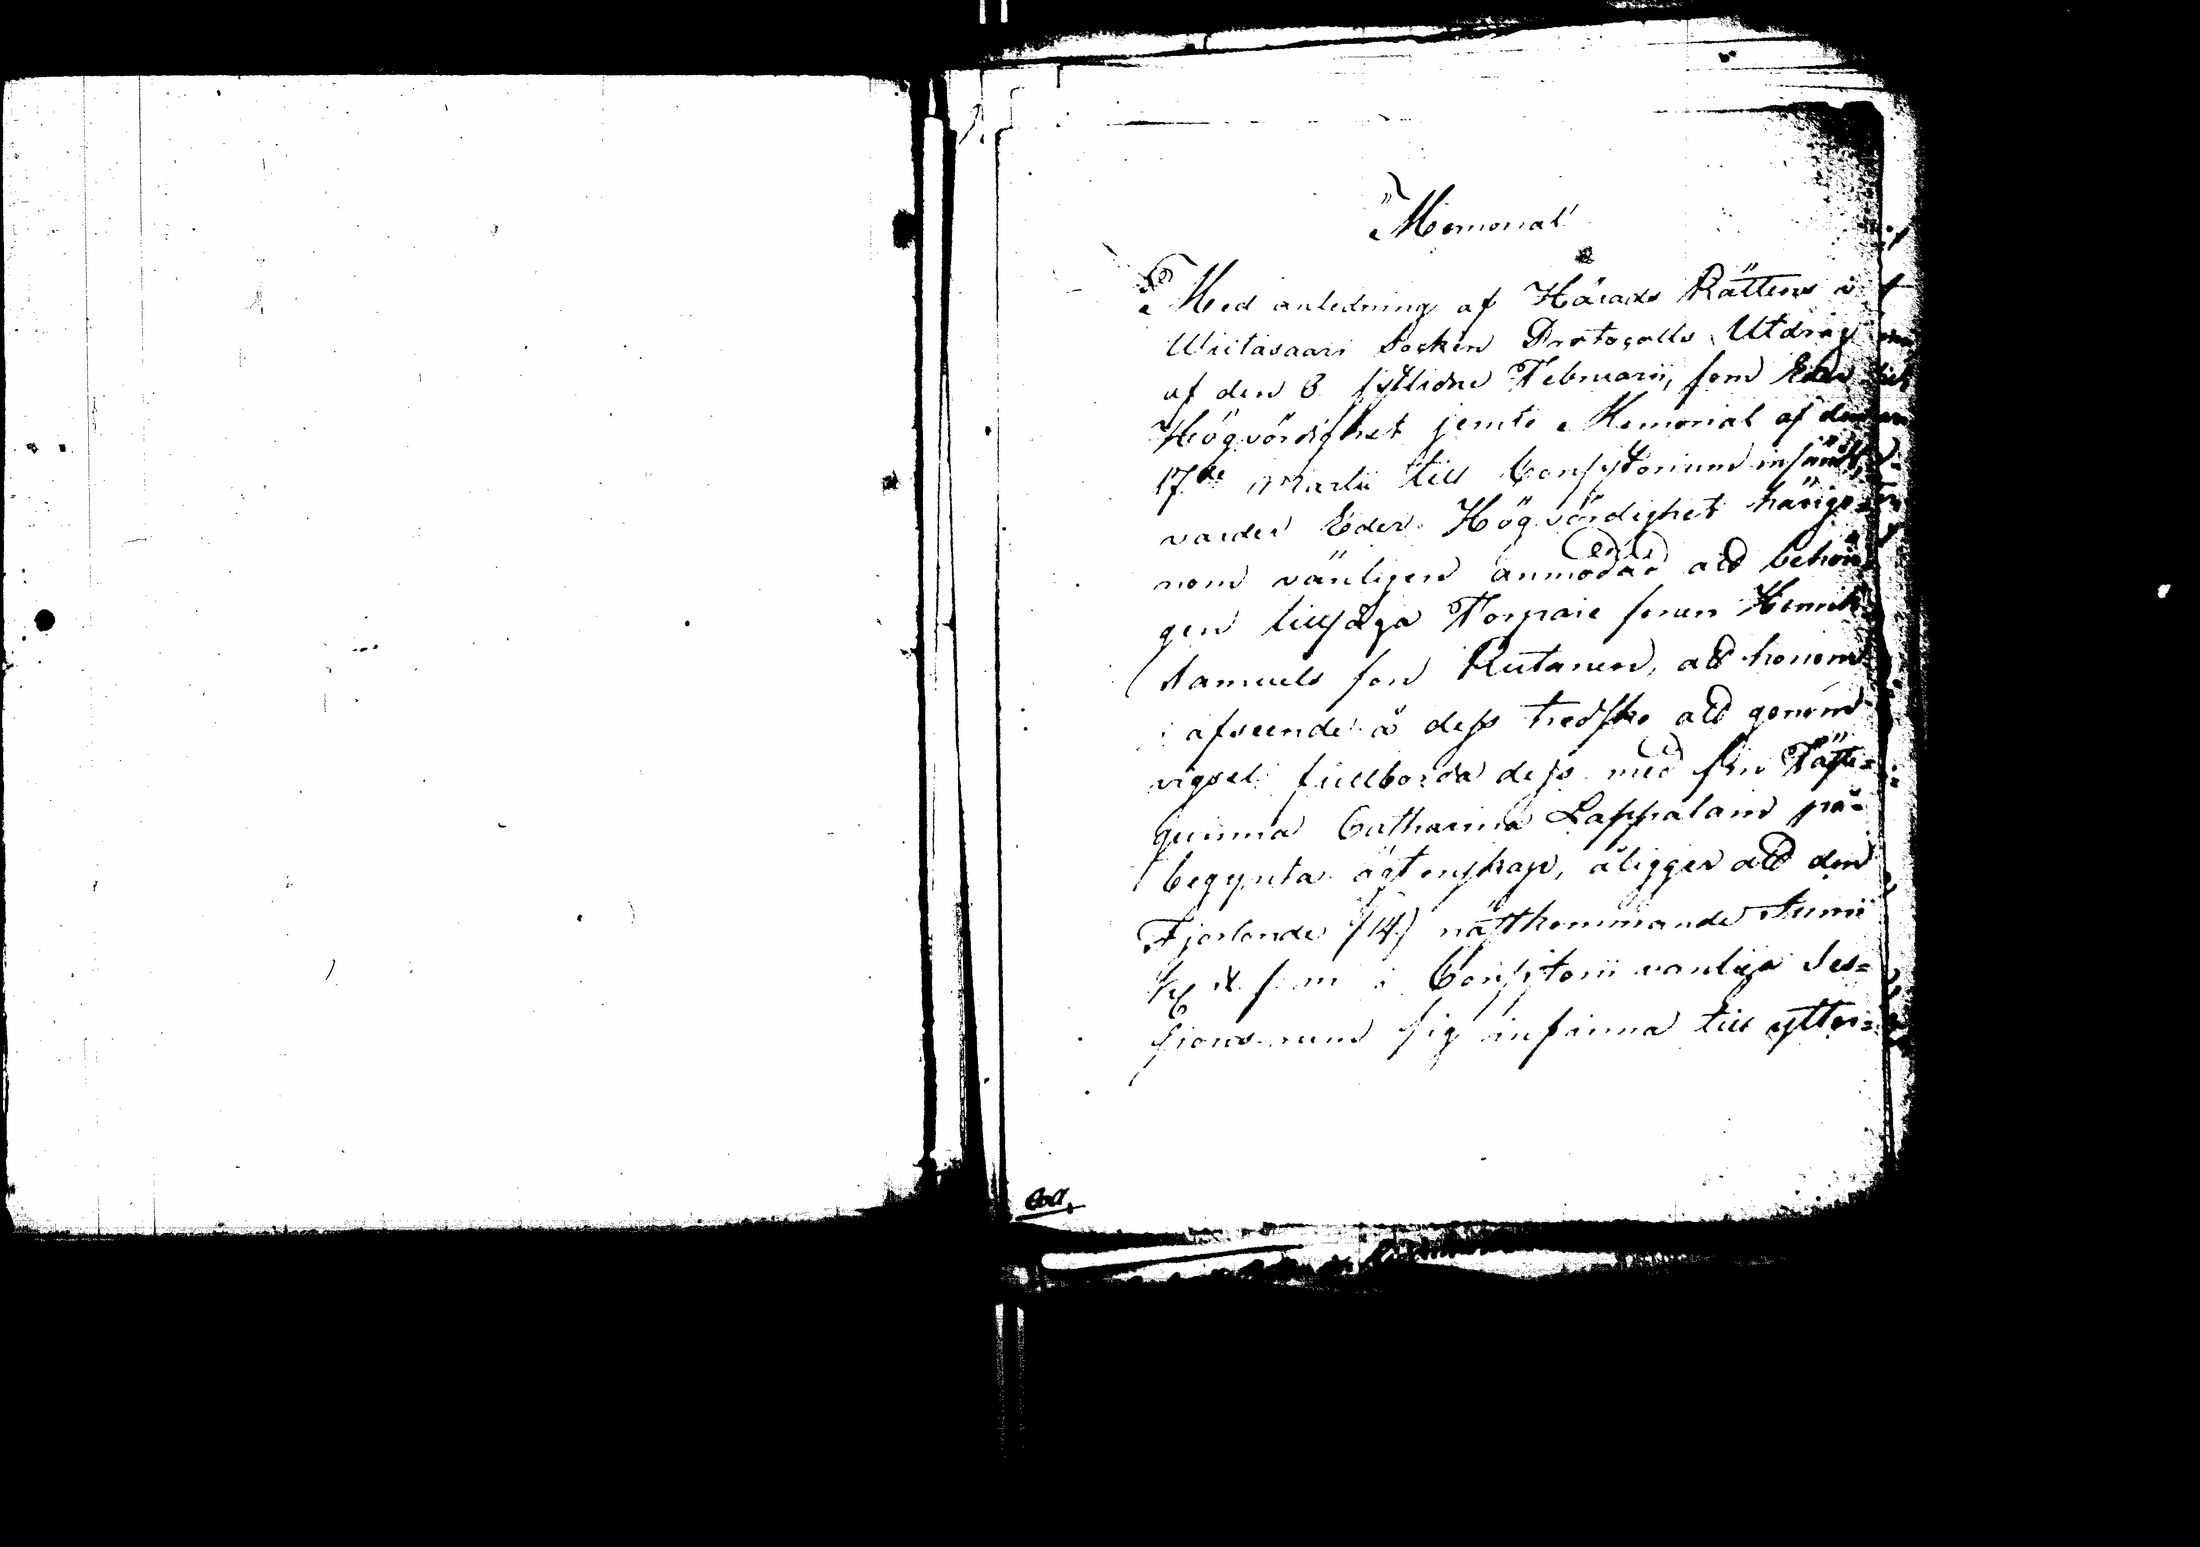 Memorial
Med anledning af Härads Rättens i
Wiitasaari Socken Protocolls Utdrag
af den 3 sistlidne Februarii, som Eder
Högvördighet jemte Memorial af den
17de Martii till Consistorium insändt,
varder Eder Högvördighet härige=
nom vänligen anmodad att behöri
gen tillsäga Torpare sonen Henrik
Samuels son Rutanen, att honom
i afseende å dess tredsko att genom
vigsel fullborda dess med sin Fäste=
quinna Catharina Lappalain på=
begynta ägtenskap, åligger att den
Fjortonde /14/ nästkommande Junii
Kl f. m. i Consistorii vanliga Ses=
sions rum sig infinna till ytter=
Coll.